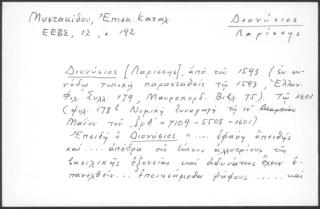 Μυστακίδου, Ἐπισκ. Καταλ.
ΕΕΒΣ, 12, σ. 192
Διονύσιος
Λαρίσσης
Διονύσιος [Λαρίσσης], ἀπὸ τοῦ 1593 (ἐν συ-
νόδῳ τοπικῇ παρασταθεὶς τῷ 1593, Ἑλλην.
Φιλ. Συλλ. 179, Μαυροκορδ. Βιβλ. 75) τῷ 1601
(φυλ. 178β Νομικὴ Συναγωγὴ τῇ
Μαΐου τοῦ ͵ζρθʹ - 7109 - 5508 - 1601)
"Ἐπειδὴ ὁ Διονύσιος «.... ἐφάνη ἀπειθὴς
καὶ .... ἀπέδρα εἰς τόπους ἀλλοτρίους τῆς
βασιλικῆς ἐξουσίας καὶ ἀδυνάτως ἔχων ἐ-
πανελθεῖν... ἐποιησάμεθα ψήφους ..... καὶ